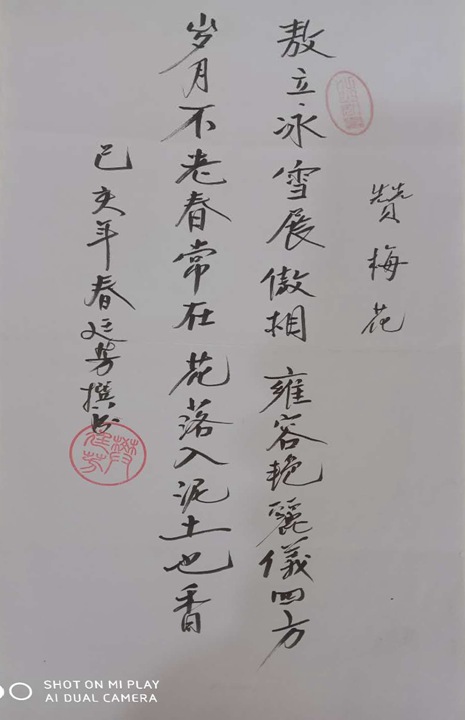 赞梅花
敖立冰雪展傲相 雍容艳丽仪四方
岁月不老春常在 花落入泥土也香
己亥年春廷芳撰书
SHOT ON MI PLAY
AI DUAL CAMERA